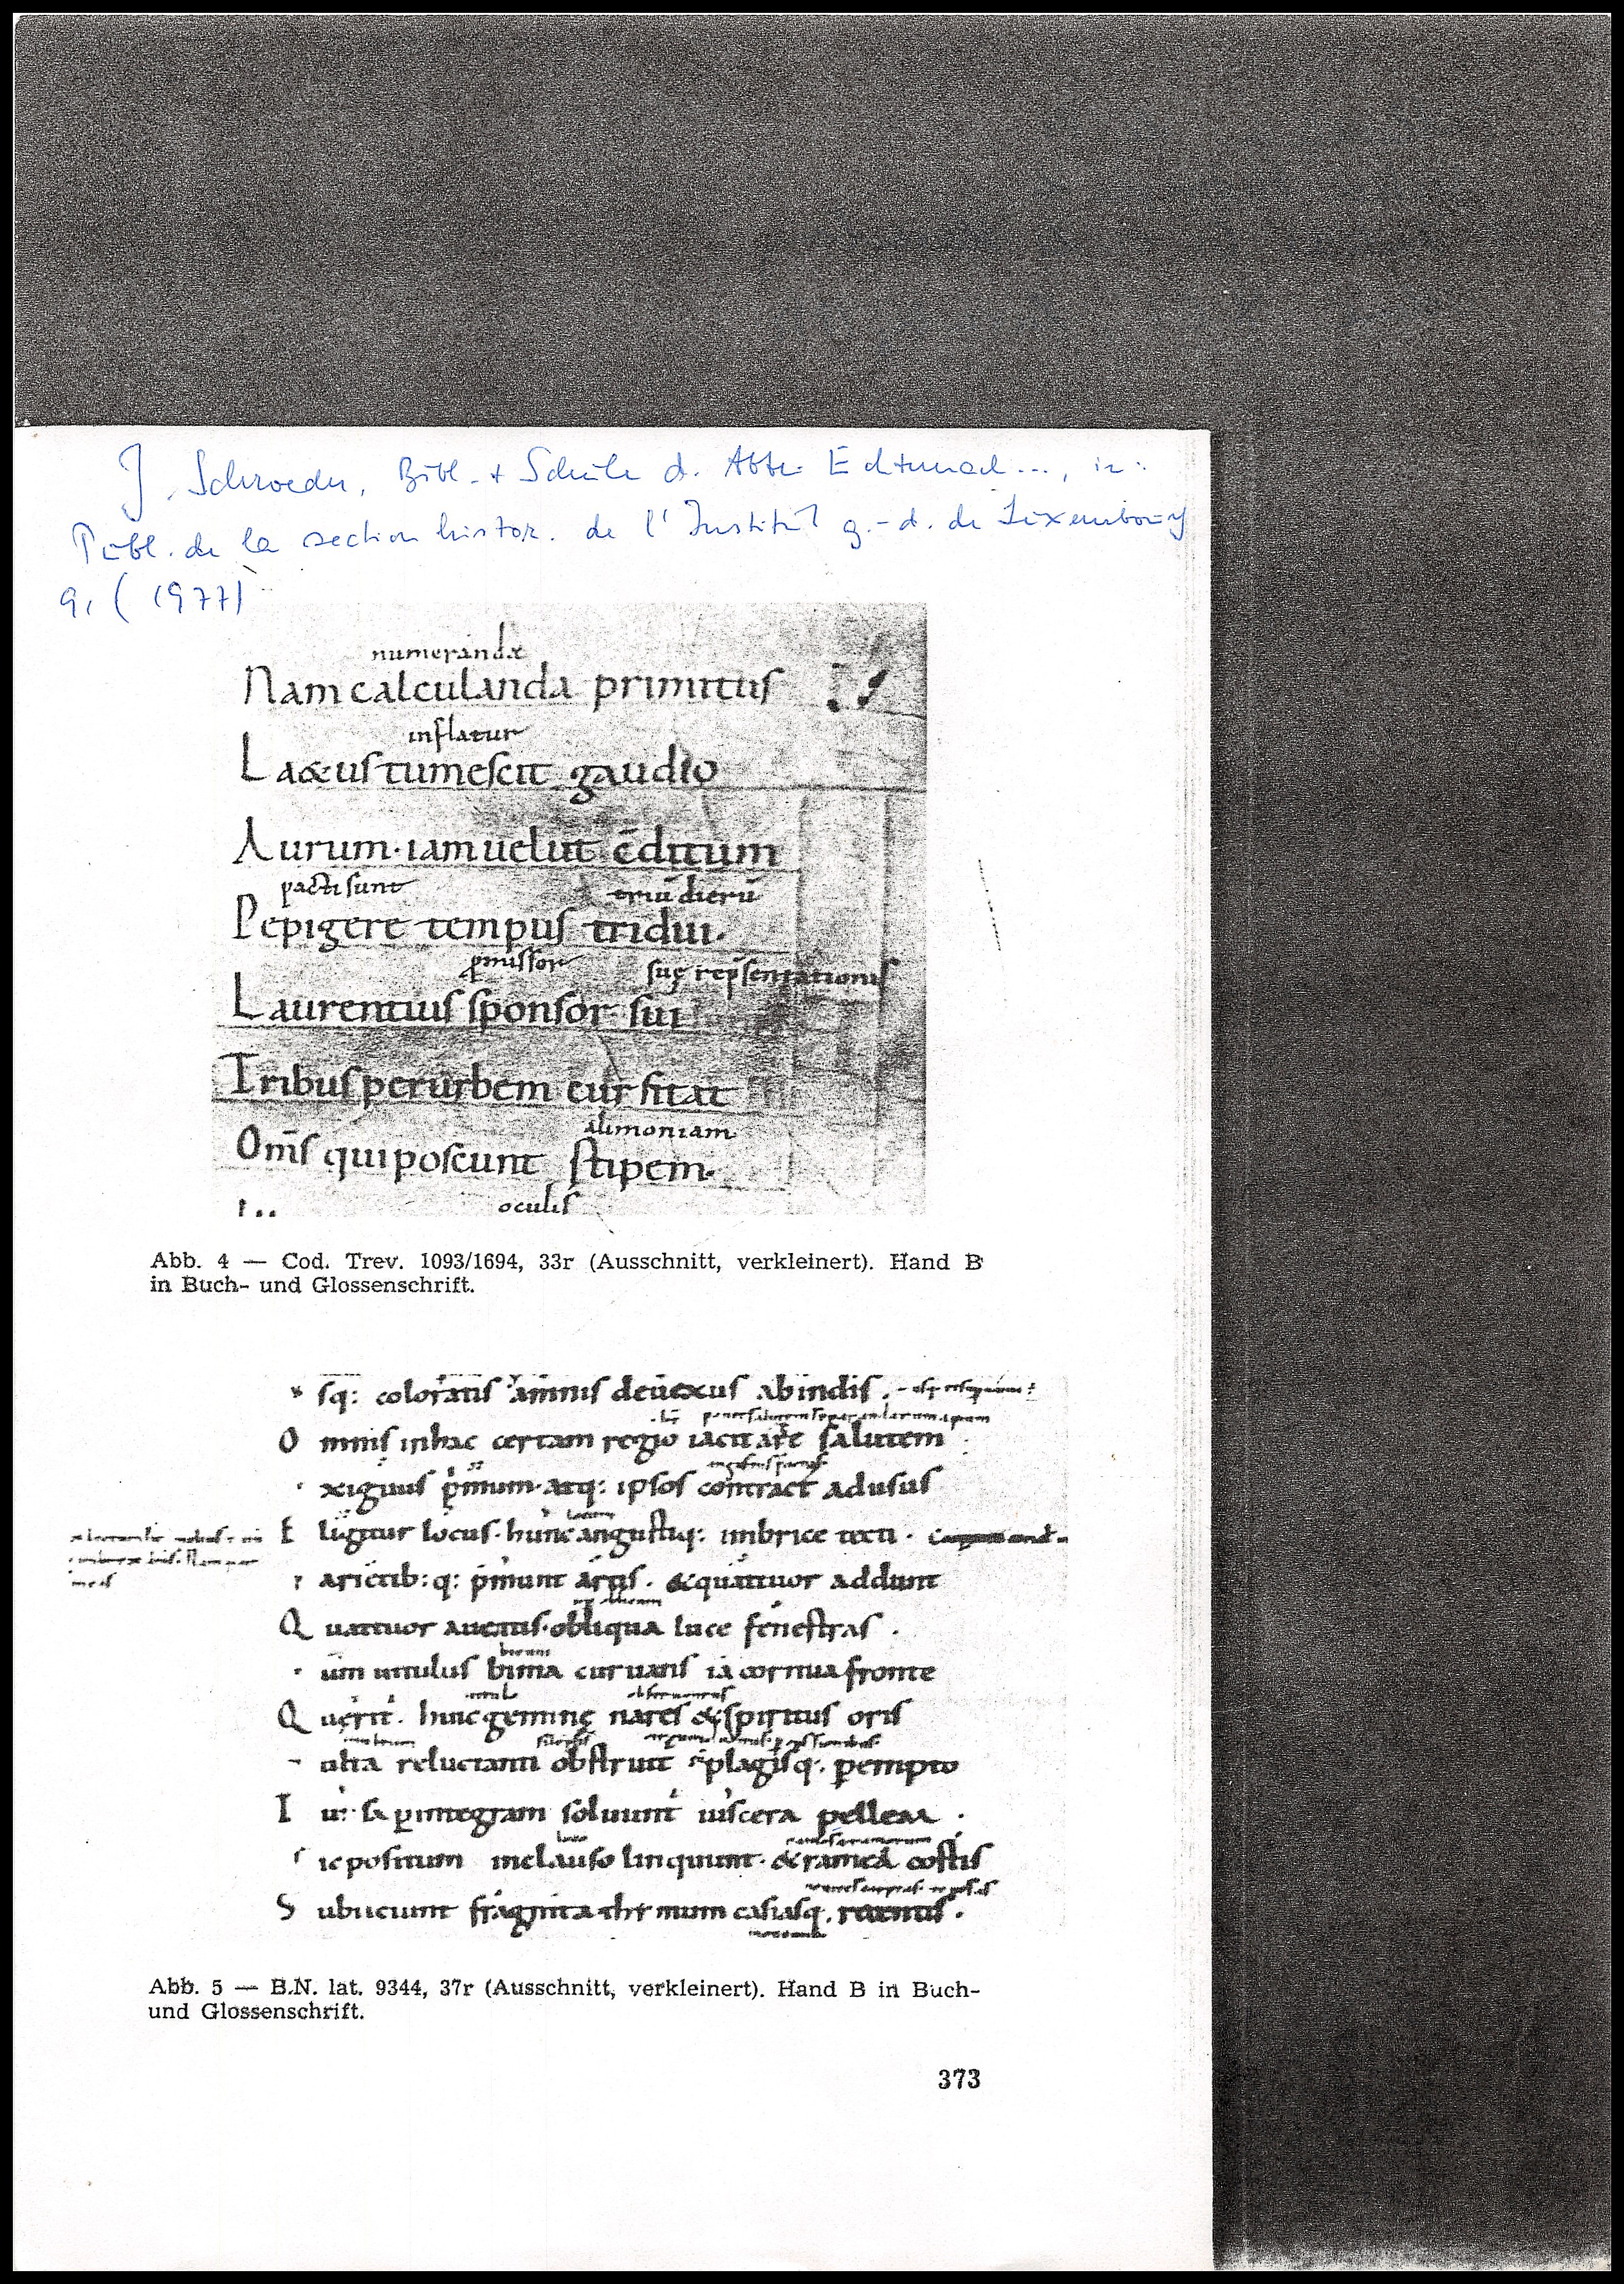 J. Schroeder, Bibl. + Schule d. Abtei Echternach ..., in:
Publ. de la section histor. de l'Institut g.-d. de Luxembourg
91 (1977)
numerandę
Nam calculanda primitus
inflatur
L a&us tumescit gaudio
Aurum · iam uelut c̄ditum
pacti sunt triū dierū
Pepigere tempus tridui.
ꝓmissor suę rep̄sentationis
Laurentius sponsor sui
Tribus per urbem cursitat
alimoniam
Om̄s qui poscunt stipem.
oculis
Abb. 4 — Cod. Trev. 1093/1694, 33r (Ausschnitt, verkleinert). Hand B
in Buch- und Glossenschrift.
sq: coloratis amnis deuexus ab indis .
O mnis in hac certam regio iacit arte salutem
xiguus p̄mum. atq: ipsos contract' ad usus
E ligitur locus. hunc angustiq: imbrice tecti .
arietib: q: p̄munt artis . & quattuor addunt
Q uattuor auentis. obliqua luce fenestras .
um uitulus bima curuans iā cornua fronte
Q uęrit̄. huic geminę nares & spiritus oris
ulta reluctanti obstruit plagisq: pempto
I ꝑ integram soluunt' uiscera pellem .
ic positum in clauso linquunt. & ramea costis
S ubiciunt fragmta thimum casiasq. recentis .
Abb. 5 — B.N. lat. 9344, 37r (Ausschnitt, verkleinert). Hand B in Buch-
und Glossenschrift.
373